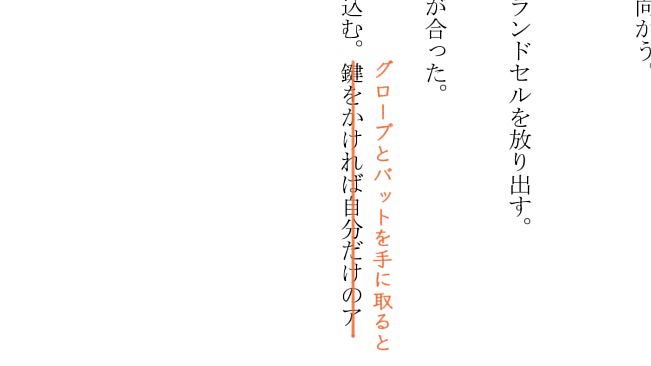 向かう。
ランドセルを放り出す。
が合った。
グローブとバットを手に取ると
込む。鍵をかければ自分だけのア